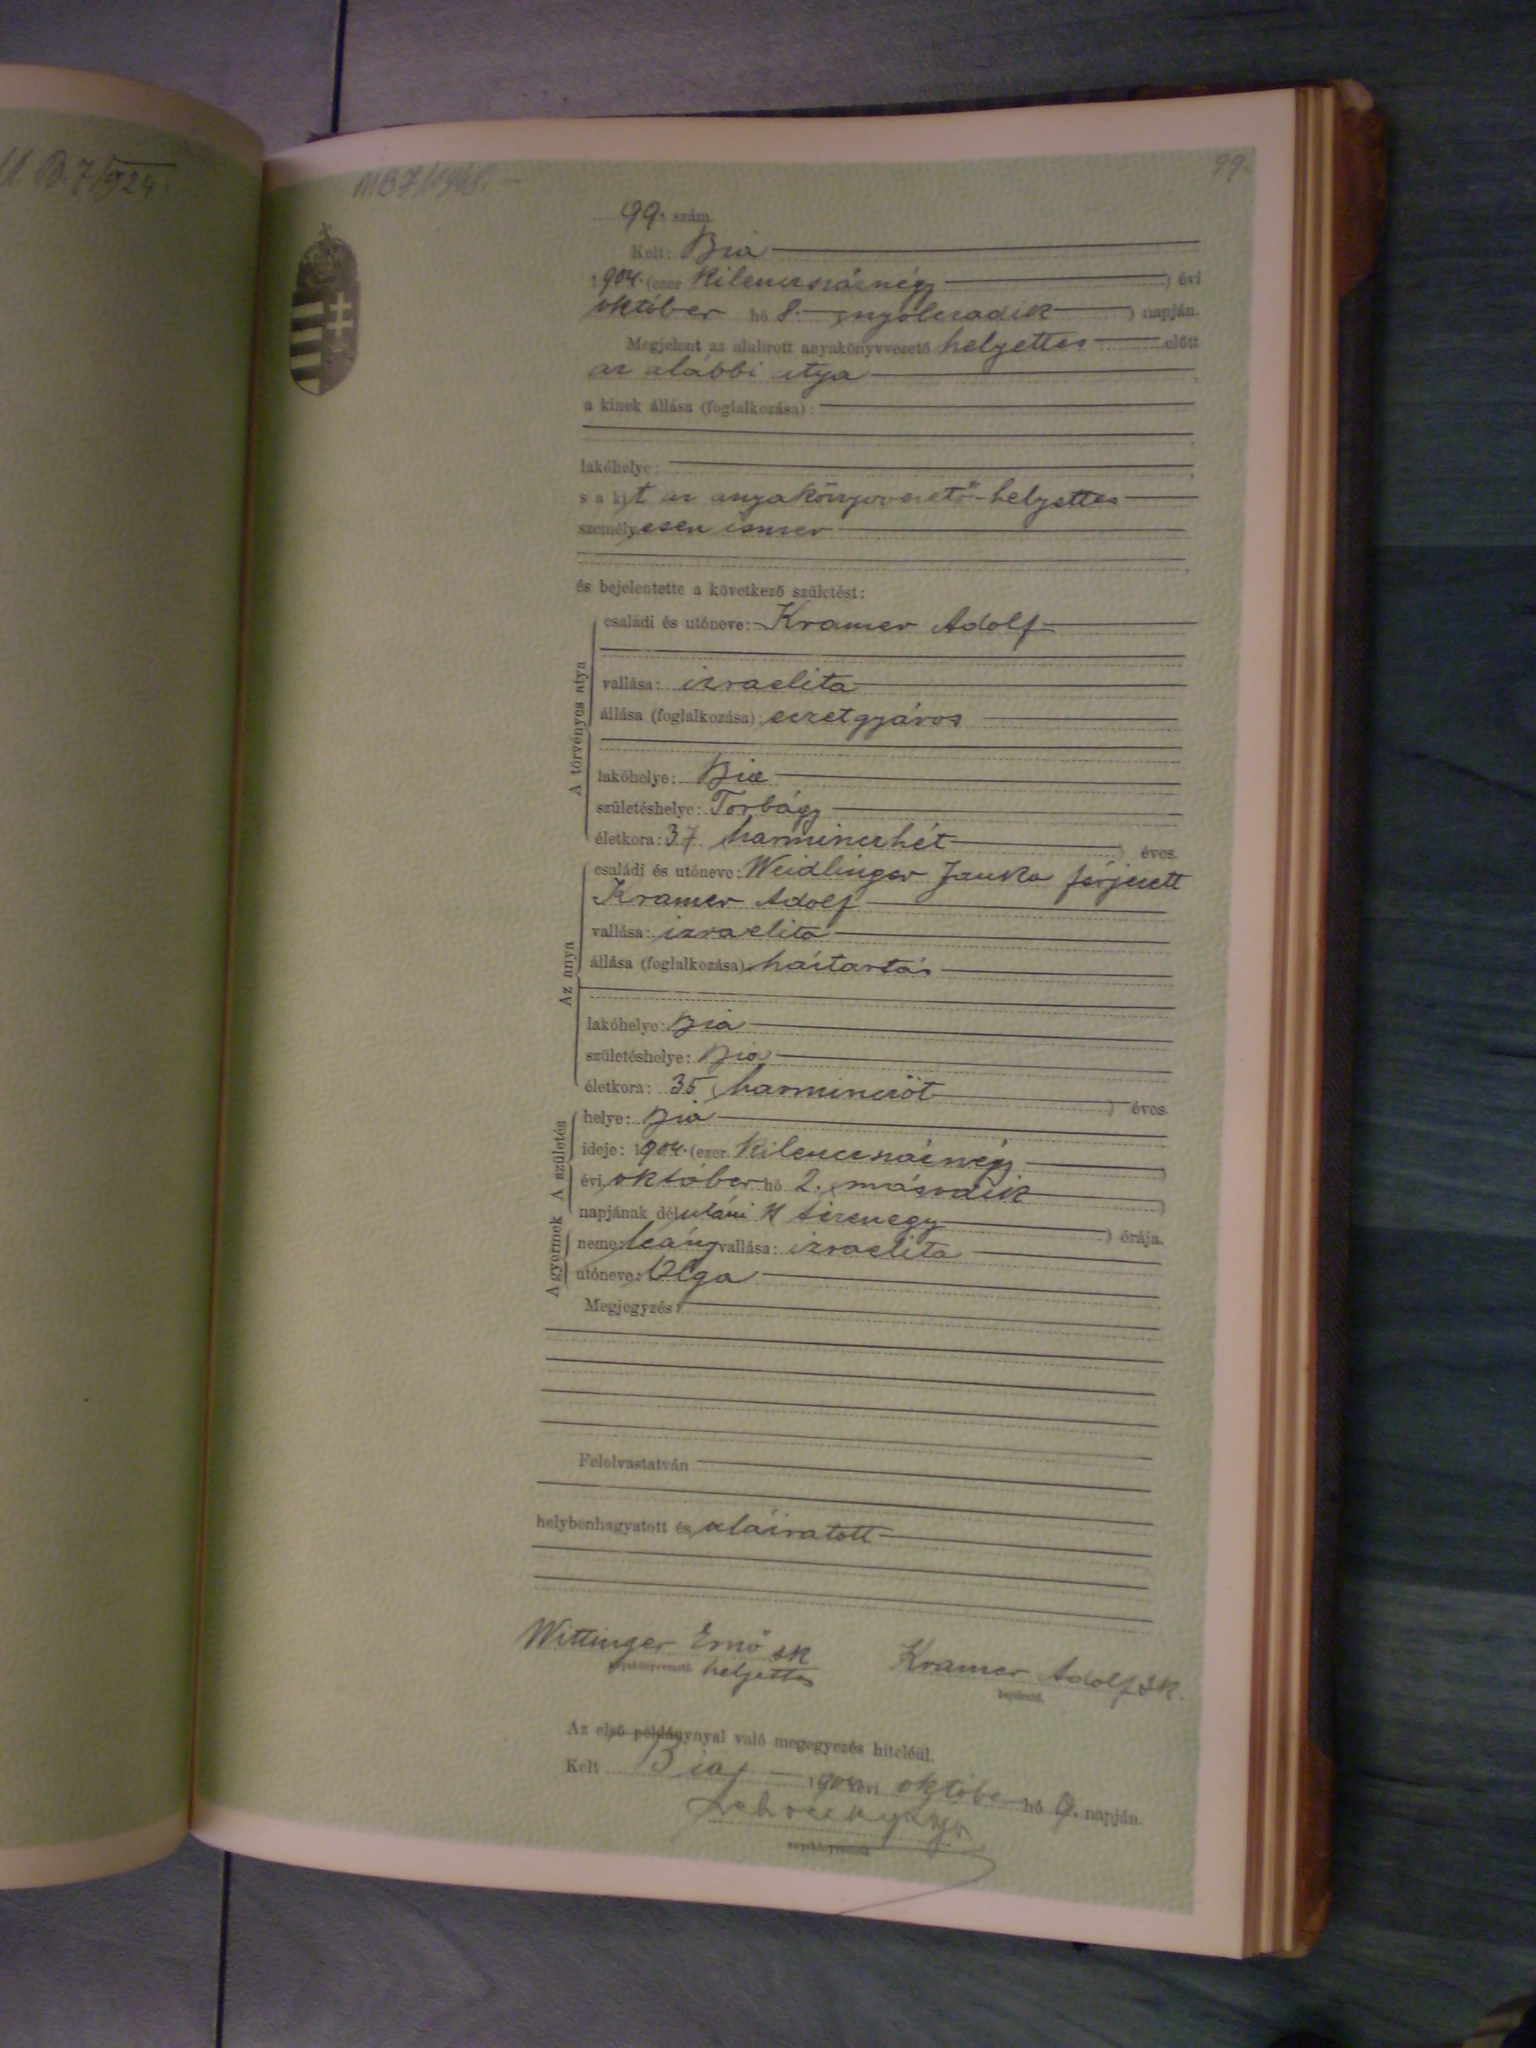 M. B. 7/924.
99.
99. szám.
Kelt: Bia
1904. (ezer kilencszáznégy ) évi
október hó 8. (nyolczadik ) napján.
Megjelent az alulirott anyakönyvvezető helyettes előtt
az alábbi atya
a kinek állása (foglalkozása):
lakóhelye:
s a kit az anyakönyvvezető-helyettes
személyesen ismer
és bejelentette a következő születést:
A törvényes atya
családi és utóneve: Kramer Adolf
vallása: izraelita
állása (foglalkozása): eczetgyáros
lakóhelye: Bia
születéshelye: Torbágy
életkora: 37 (harminczhét ) éves.
Az anya
családi és utóneve: Weidlinger Janka férjezett
Kramer Adolf
vallása: izraelita
állása (foglalkozása): háztartás
lakóhelye: Bia
születéshelye: Bia
életkora: 35 (harminczöt ) éves.
A születés
helye: Bia
ideje: 1904. (ezer kilencszáznégy )
évi október hó 2. (második )
napjának délutáni 11 (tizenegy ) órája.
A gyermek
neme: leány vallása: izraelita
utóneve: Olga
Megjegyzés:
Felolvastatván
helybenhagyatott és aláiratott
Wittinger Ernő sk
anyakönyvvezető helyettes
Kramer Adolf sk.
bejelentő.
Az első példánynyal való megegyezés hiteléül.
Kelt Bia, 1904 évi október hó 9. napján.
anyakönyvvezető